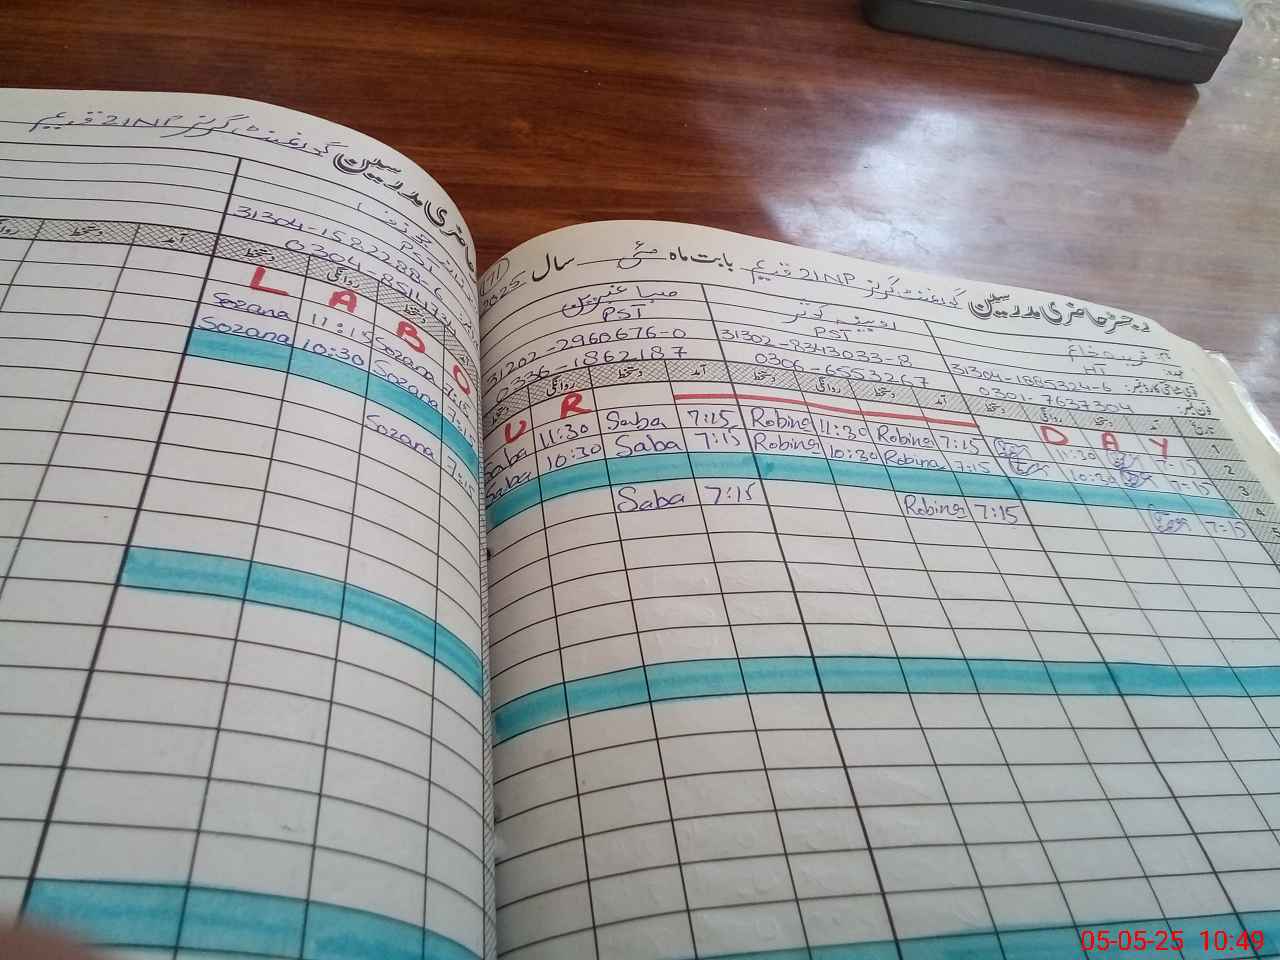 رجسٹر حاضری مدرسین گورنمنٹ گرلز 21NP قدیم بابت ماہ مئی سال 2025
HT
31304-1885324-6
0301-7637304
PST
31302-8343033-8
0306-6553267
صبا عنبرین
PST
31202-2960676-0
0336-1862187
تاریخ آمد دستخط روانگی دستخط آمد دستخط روانگی دستخط آمد دستخط روانگی دستخط
1 Y A D R U
2 7:15 11:30 7:15 Robina 11:30 Robina 7:15 Saba 11:30 Saba
3 7:15 10:30 7:15 Robina 10:30 Robina 7:15 Saba 10:30 Saba
4
5 7:15 7:15 Robina 7:15 Saba
حاضری مدرسین گورنمنٹ گرلز 21NP قدیم
PST
31304-1582288-6
آمد دستخط روانگی دستخط آمد دستخط
O B A L
7:15 Sozana 11:15 Sozana
7:15 Sozana 10:30 Sozana
7:15 Sozana
05-05-25 10:49